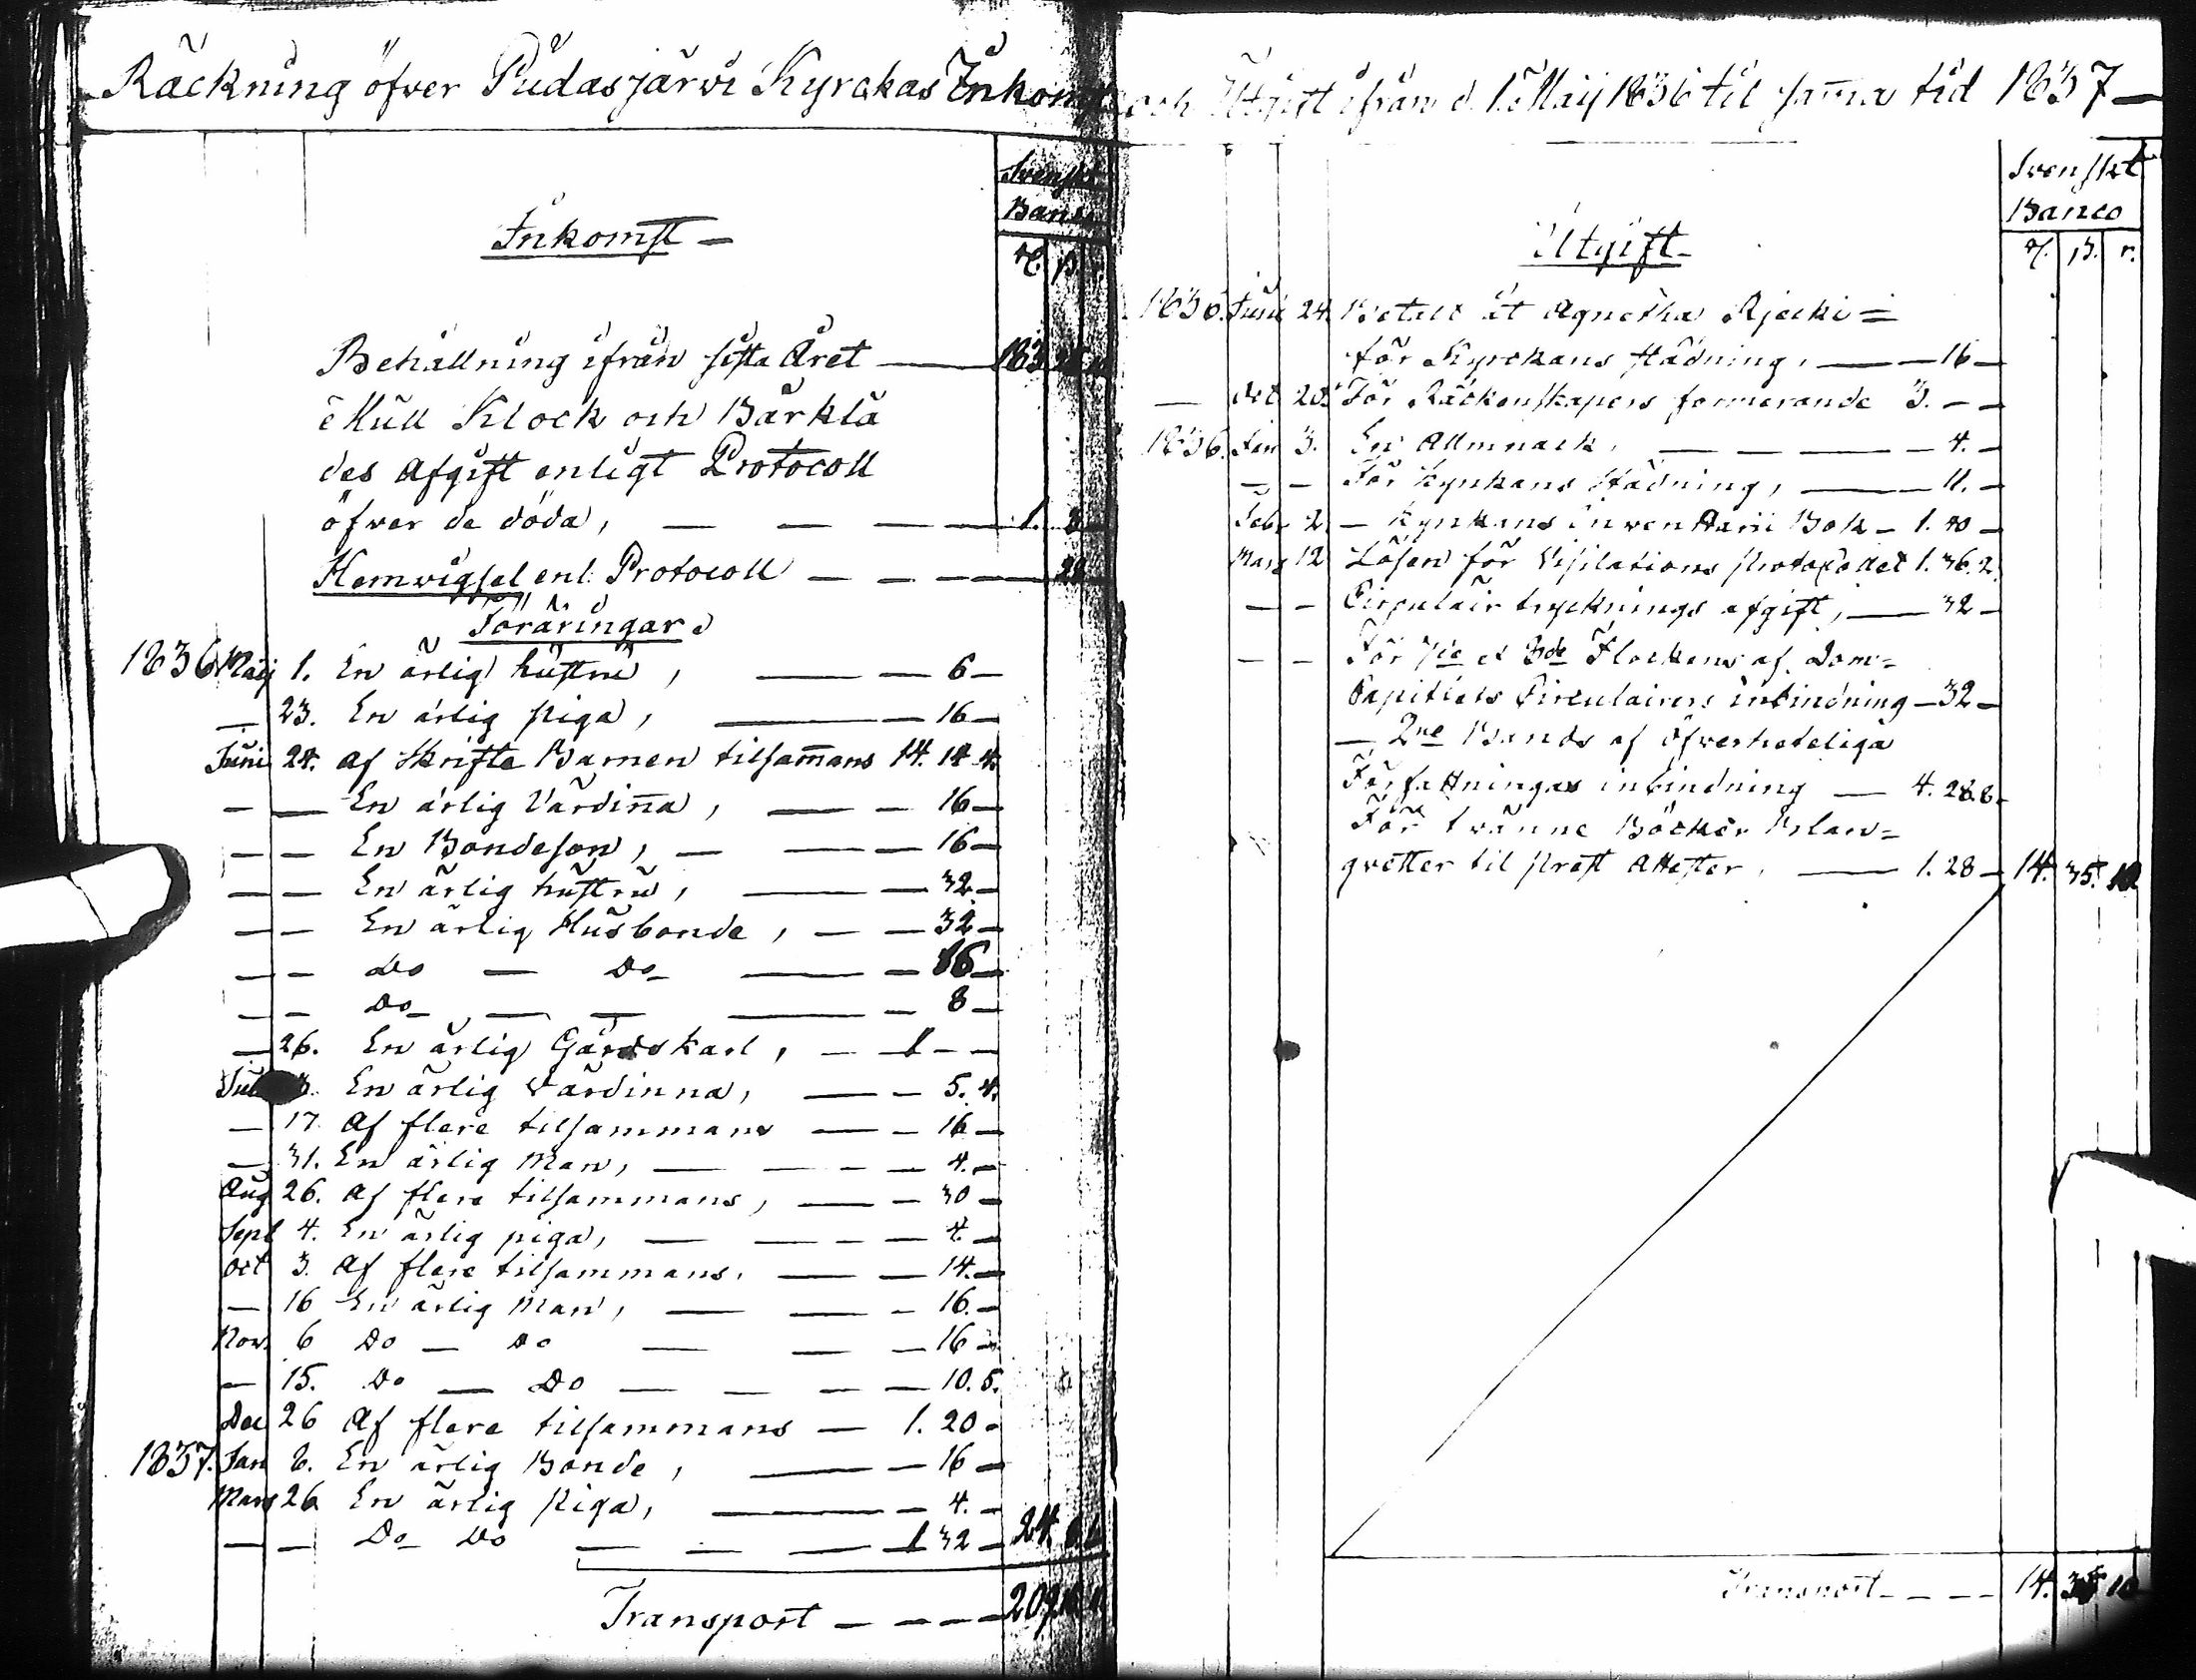 Räckning öfver Pudasjärvi Kyrckas Inkomst och Utgift ifrån d. 1 Maij 1836 til samma tid 1837
Svenskt
Banco
Inkomst
Behållning ifrån sista Året — 183
Mull Klock och Bårklä
des Afgift enligt Protocoll
öfwer de döda, — 1. 8
Hemwigsel enl. Protocoll — 28
Föräringar
1836 Maij 1. En ärlig hustru, — 6 —
— 23. En ärlig piga, — 16 —
Juni 24. Af Skrifte Barnen tilsam̄ans 14. 14. 4.
— — En ärlig Värdin̄a, — 16 —
— — En Bondeson, — 16 —
— — En ärlig hustru, — 32 —
— — En ärlig Husbonde, — 32 —
— — Do — Do — 16 —
— — Do — 8 —
— 26. En ärlig Gårdskarl, — 1 — —
3. En ärlig Värdinna, — 5. 4.
— 17. Af flere tilsammans — 16 —
— 31. En ärlig Man, — 4. —
Aug 26. Af flere tilsammans, — 30 —
Sept 4. En ärlig piga, — 4. —
Oct 3. Af flere tilsammans. — 14. —
— 16 En ärlig Man, — 16. —
Nov. 6 Do — Do — 16 —
— 15. Do — Do — 10. 5.
Dec 26 Af flere tilsammans — 1. 20 —
1837. Jan 8. En ärlig Bonde, — 16 —
Mars 26 En ärlig piga, — 4. —
— — Do Do — 1 32 — 24.
Transport — 209
Svenskt
Banco
Utgift
R. ß. r.
1836. Juni 24. Betalt åt Agnetha
för Kyrckans städning, — 16 —
— Oct 20. För Räckenskapers formerande 3. — —
1836. Jan 3. En Allmnack, — 4. —
— — För Kyrkans städning, — 11. —
Febr 2. — Kyrkans Inwentarii Bok — 1. 40 —
Mars 12 Lösen för Visitations Protocollet 1. 36. 2.
— — Circulair trycknings afgift, — 32 —
— — För 7de et 8de Flockens af Dom=
Capitlets Circulairers inbindning — 32 —
— 2ne Bands af Öfwerheteliga
Författningar inbindning — 4. 28. 8.
För tvänne Böcker Blan=
qvetter til Prest Attester. — 1. 28 — 14. 35. 10
Transport — 14. 35 10